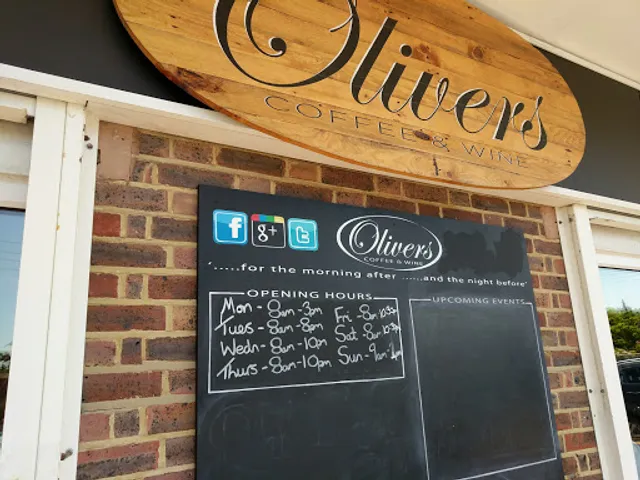 Olivers
COFFEE & WINE
f g+ t
Olivers
COFFEE & WINE
‘.....for the morning after ......and the night before’
OPENING HOURS
Mon - 8am - 3pm
Tues - 8am - 8pm
Wedn - 8am - 10pm
Thurs - 8am - 10pm
Fri - 8am
Sat - 8am
Sun - 9am
UPCOMING EVENTS